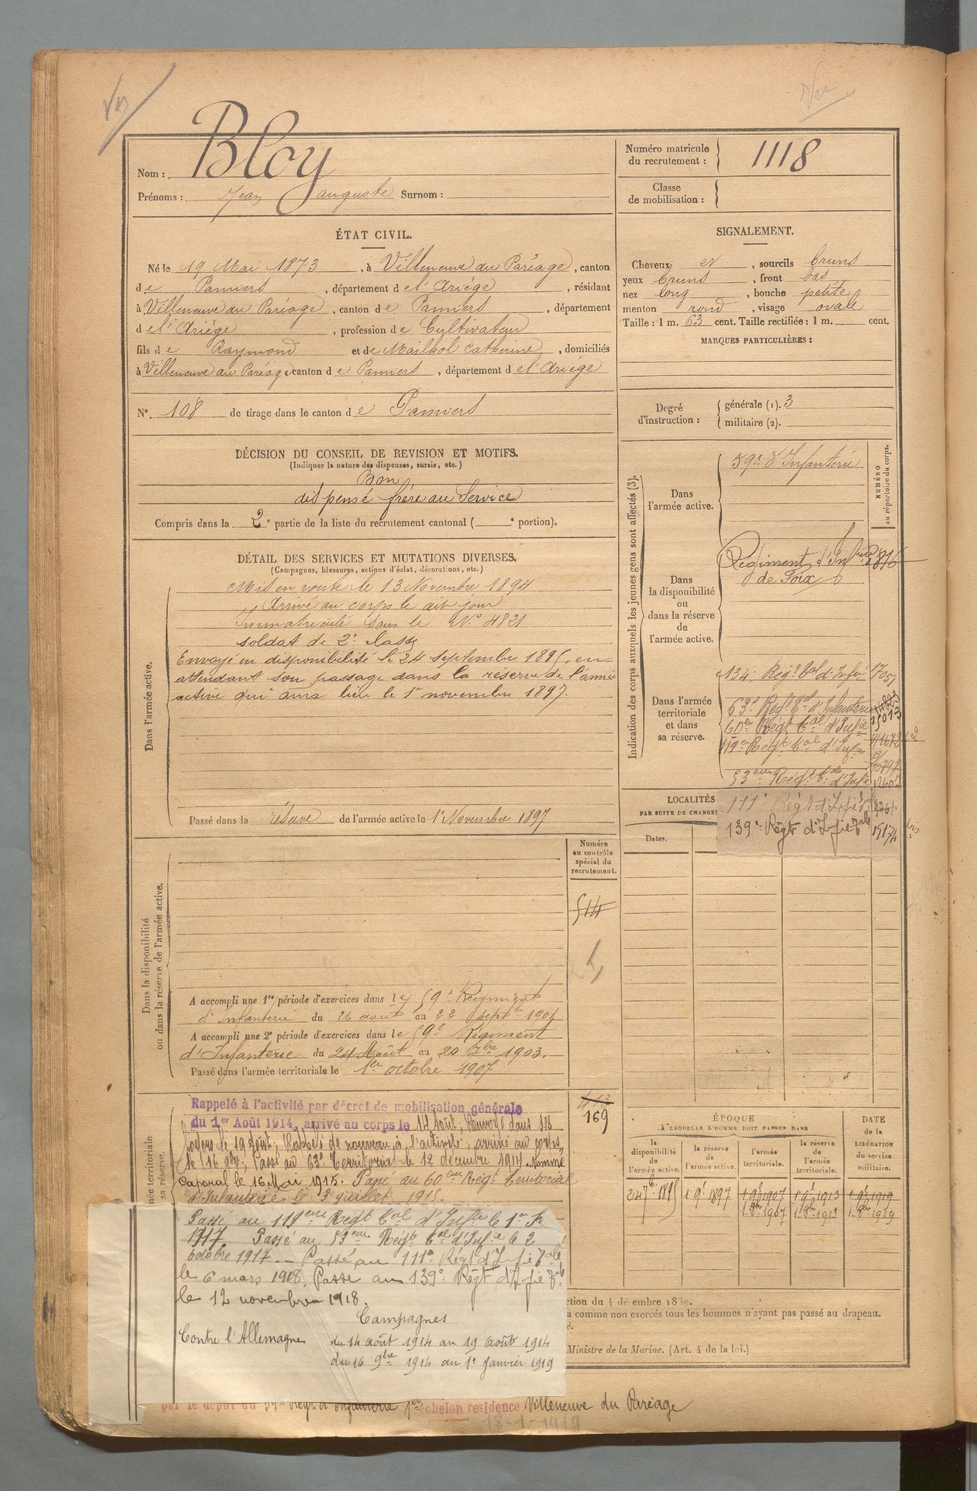 Bloy
Nom :
Prénoms : Jean auguste Surnom :
Numéro matricule
du recrutement : 1118
Classe
de mobilisation :
ÉTAT CIVIL.
Né le 19 Mai 1873, à Villeneuve du Paréage, canton
de Pamiers, département de l'Ariége, résidant
à Villeneuve du Paréage, canton de Pamiers, département
de l'Ariége, profession de Cultivateur
fils de Raymond et de Mailhol Catherine, domiciliés
à Villeneuve du Paréage canton de Pamiers, département de l'Ariége
N°. 108 de tirage dans le canton de Pamiers
SIGNALEMENT.
Cheveux et, sourcils bruns
yeux bruns, front bas
nez long, bouche petite
menton rond, visage ovale
Taille : 1 m. 63 cent. Taille rectifiée : 1 m. cent.
MARQUES PARTICULIÈRES :
Degré
d'instruction :
générale (1). 3
militaire (2).
DÉCISION DU CONSEIL DE REVISION ET MOTIFS.
(Indiquer la nature des dispenses, sursis, etc.)
Bon
dispensé frère au Service
Compris dans la 2e partie de la liste du recrutement cantonal ( e portion).
DÉTAIL DES SERVICES ET MUTATIONS DIVERSES.
(Campagnes, blessures, actions d'éclat, décorations, etc.)
Dans l'armée active.
Mis en route le 13 Novembre 1894
Arrivé au corps le dit jour
immatriculé sous le N° 4821
soldat de 2e classe
Envoyé en disponibilité le 24 septembre 1895, en
attendant son passage dans la réserve de l'armée
active qui aura lieu le 1er novembre 1897.
Passé dans la réserve de l'armée active le 1er Novembre 1897
Indication des corps auxquels les jeunes gens sont affectés (3).
NUMÉRO
au répertoire du corps.
Dans
l'armée active.
59e d'Infanterie
Dans
la disponibilité
ou
dans la réserve
de
l'armée active.
Régiment d'Infrie
de Foix
Dans l'armée
territoriale
et dans
sa réserve.
134e Régt tal d'Infie
63e Régt tal d'Infanterie
60e Régt tal d'Infie
119e Régt tal d'Infie
53eme Régt tal d'Infie
111e Régt d'Infie tale
139e Régt d'Infie tale
LOCALITÉS
PAR SUITE DE CHANGE
Dates.
Numéro
au contrôle
spécial du
recrutement.
514
Dans la disponibilité
ou dans la réserve de l'armée active.
A accompli une 1re période d'exercices dans le 59e Régiment
d'Infanterie du 26 août au 22 septbre 1901
A accompli une 2e période d'exercices dans le 59e Régiment
d'Infanterie du 24 Août au 20 7bre 1903.
Passé dans l'armée territoriale le 1er octobre 1907
169
Rappelé à l'activité par décret de mobilisation générale
du 1er Août 1914, arrivé au corps le 14 Août; Renvoyé dans ses
foyers le 19 Août; Rappelé de nouveau à l'activité, arrivé au corps
le 16 9bre; Passé au 63e Territorial le 12 décembre 1914. Nommé
Caporal le 16 Mai 1915. Passé au 60eme Régt Territorial
d'Infanterie le 3 juillet 1915.
Passé au 119eme Régt tal d'Infie le 1er
1917. Passé au 53eme Régt tal d'Infie le 2
octobre 1917. — Passé au 111e Régt d'Infie tale
le 6 mars 1918. Passé au 139e Régt d'Infie tale
le 12 novembre 1918.
Campagnes
Contre l'Allemagne du 14 août 1914 au 19 août 1914
du 16 9bre 1914 au 1er janvier 1919
ÉPOQUE
A LAQUELLE L'HOMME DOIT PASSER DANS
DATE
de la
LIBÉRATION
du service
militaire.
la
disponibilité
de
l'armée active.
la
réserve
de
l'armée active.
l'armée
territoriale.
la
réserve
de l'armée
territoriale.
24 7bre 1895
1 9bre 1897
1 9bre 1907
1 9bre 1913
1 9bre 1919
ction du 4 décembre 1889.
a comme non exercés tous les hommes n'ayant pas passé au drapeau.
Ministre de la Marine. (Art. 4 de la loi.)
par le dépôt du Régt d'Infanterie 1er échelon residence Villeneuve du Paréage
18-1-1919